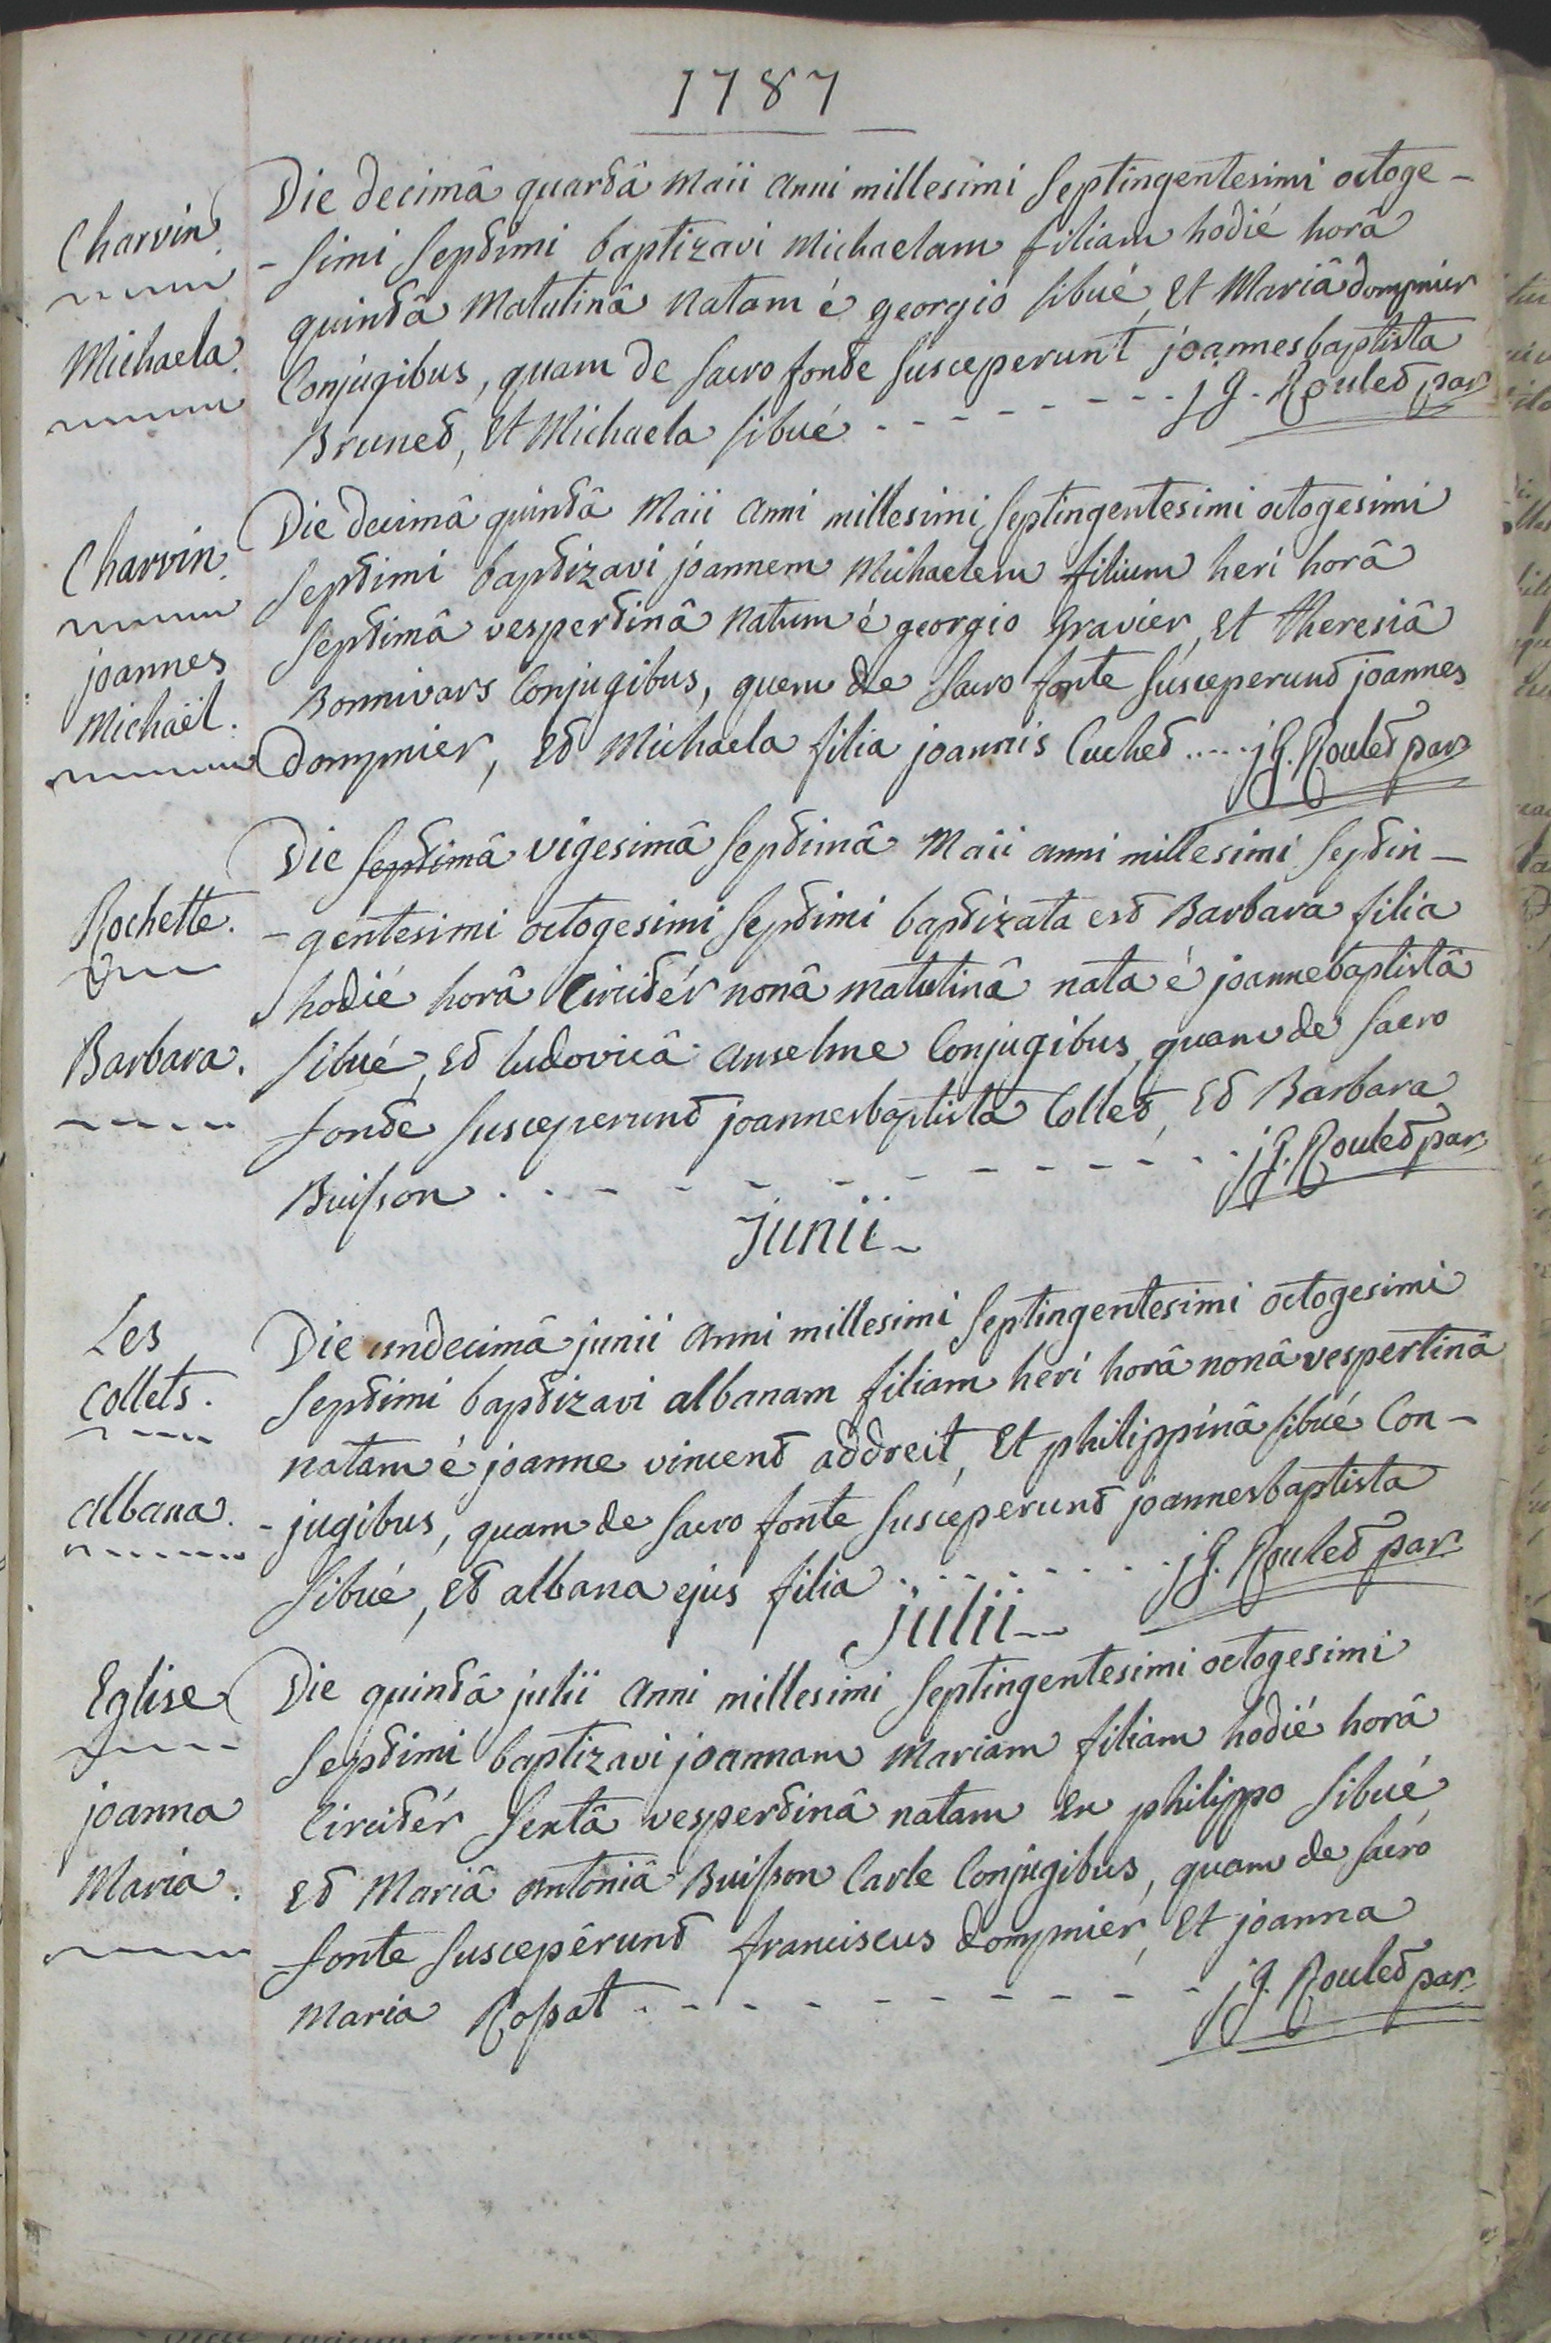 1787
Charvin
Michaela.
Die decimâ quartâ Maii anni millesimi septingentesimi octoge-
-simi septimi baptizavi Michaelam filiam hodié horâ
quintâ matutinâ natam é georgio sibué, et Mariâ dompnier
Conjugibus, quam de sacro fonte susceperunt joannesbaptista
Brunet, et Michaela sibué - - - - - - - - j g. Roulet par
Charvin.
joannes
Michaël.
Die decimâ quintâ Maii anni millesimi septingentesimi octogesimi
septimi baptizavi joannem Michaelem filium heri horâ
septimâ vespertinâ natum é georgio gravier, et theresiâ
Bonnivars Conjugibus, quem de sacro fonte susceperunt joannes
dompnier, et Michaela filia joannis Cuchet ..... jg. Roulet par
Rochette.
Barbara.
Die septimâ vigesimâ septimâ Maii anni millesimi septin-
-gentesimi octogesimi septimi baptizata est Barbara filia
hodié horâ Circitér nonâ matutinâ nata é joannebaptistâ
sibué, et ludovicâ anselme Conjugibus, quam de sacro
fonte susceperunt joannesbaptista Collet, et Barbara
Buisson - - - - - - - - - - - jg. Roulet par
Junii
Les
Collets.
albana.
Die undecimâ junii anni millesimi septingentesimi octogesimi
septimi baptizavi albanam filiam heri horâ nonâ vespertinâ
natam é joanne vincent addreit, et philippinâ sibué Con-
-jugibus, quam de sacro fonte susceperunt joannesbaptista
sibué, et albana ejus filia - - - - - - - - jg. Roulet par
Julii
Eglise
joanna
Maria.
Die quintâ julii anni millesimi septingentesimi octogesimi
septimi baptizavi joannam Mariam filiam hodié horâ
Circitér sextâ vespertinâ natam ex philippo sibué
et Mariâ antoniâ Buisson Carle Conjugibus, quam de sacro
fonte susceperunt franciscus dompnier, et joanna
Maria Rossat - - - - - - - - - - jg. Roulet par